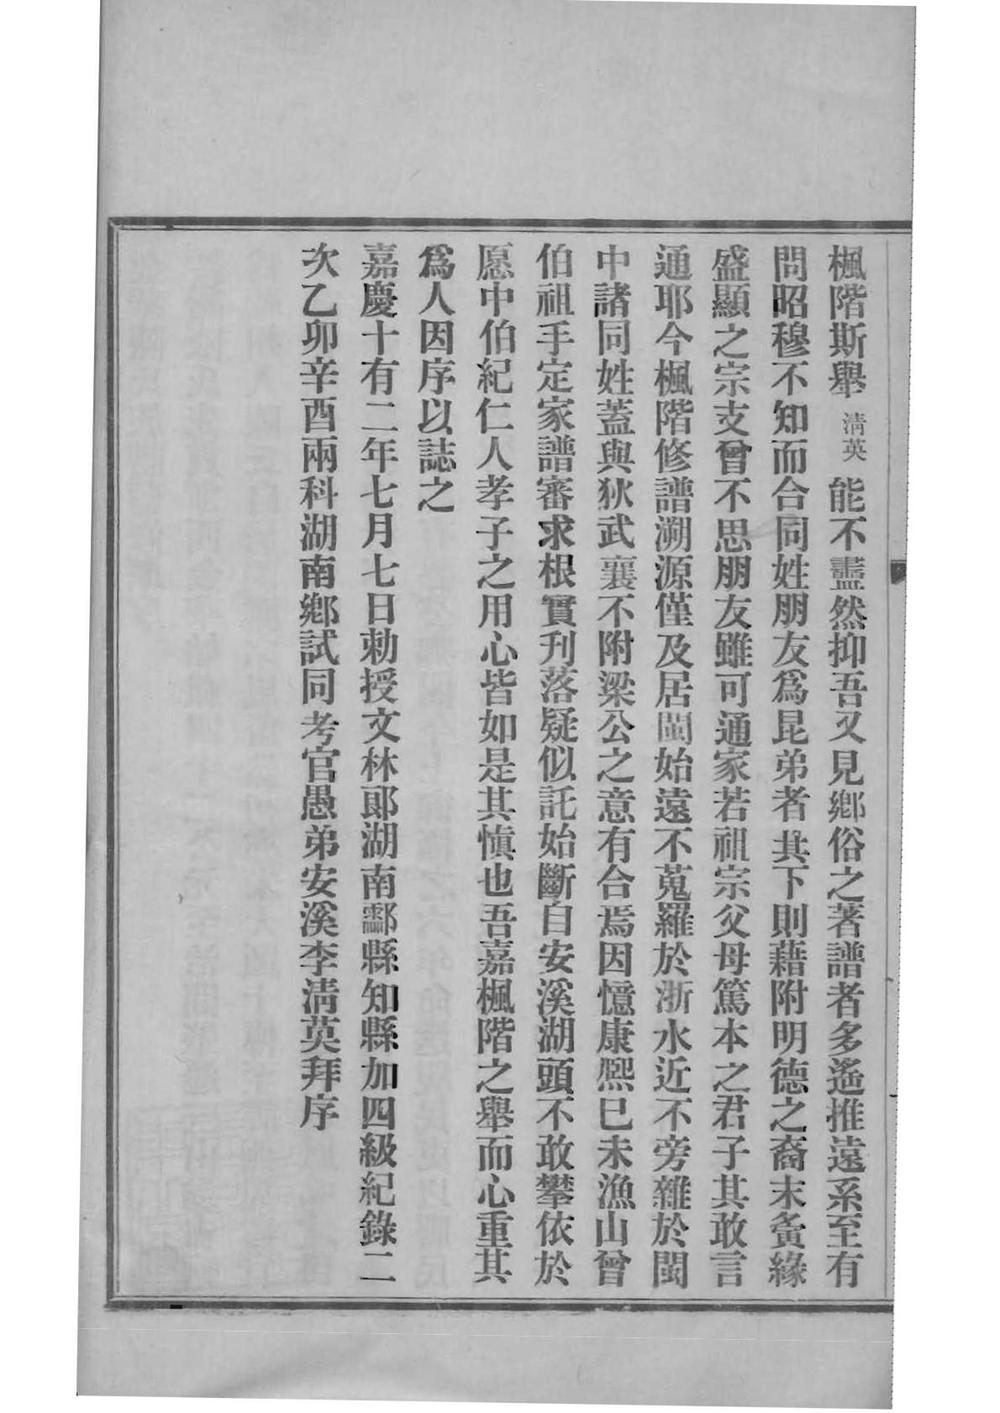 楓階斯舉清英能不衋然抑吾又見鄕俗之著譜者多遙推遠系至有
問昭穆不知而合同姓朋友爲昆弟者其下則藉附明德之裔末夤緣
盛顯之宗支曾不思朋友雖可通家若祖宗父母篤本之君子其敢言
通耶今楓階修譜溯源僅及居閩始遠不蒐羅於浙水近不旁雜於閩
中諸同姓蓋與狄武襄不附梁公之意有合焉因憶康熙巳未漁山曾
伯祖手定家譜審求根實刋落疑似託始斷自安溪湖頭不敢攀依於
愿中伯紀仁人孝子之用心皆如是其愼也吾嘉楓階之舉而心重其
爲人因序以誌之
嘉慶十有二年七月七日勅授文林郞湖南酃縣知縣加四級紀錄二
次乙卯辛酉兩科湖南鄕試同考官愚弟安溪李淸英拜序